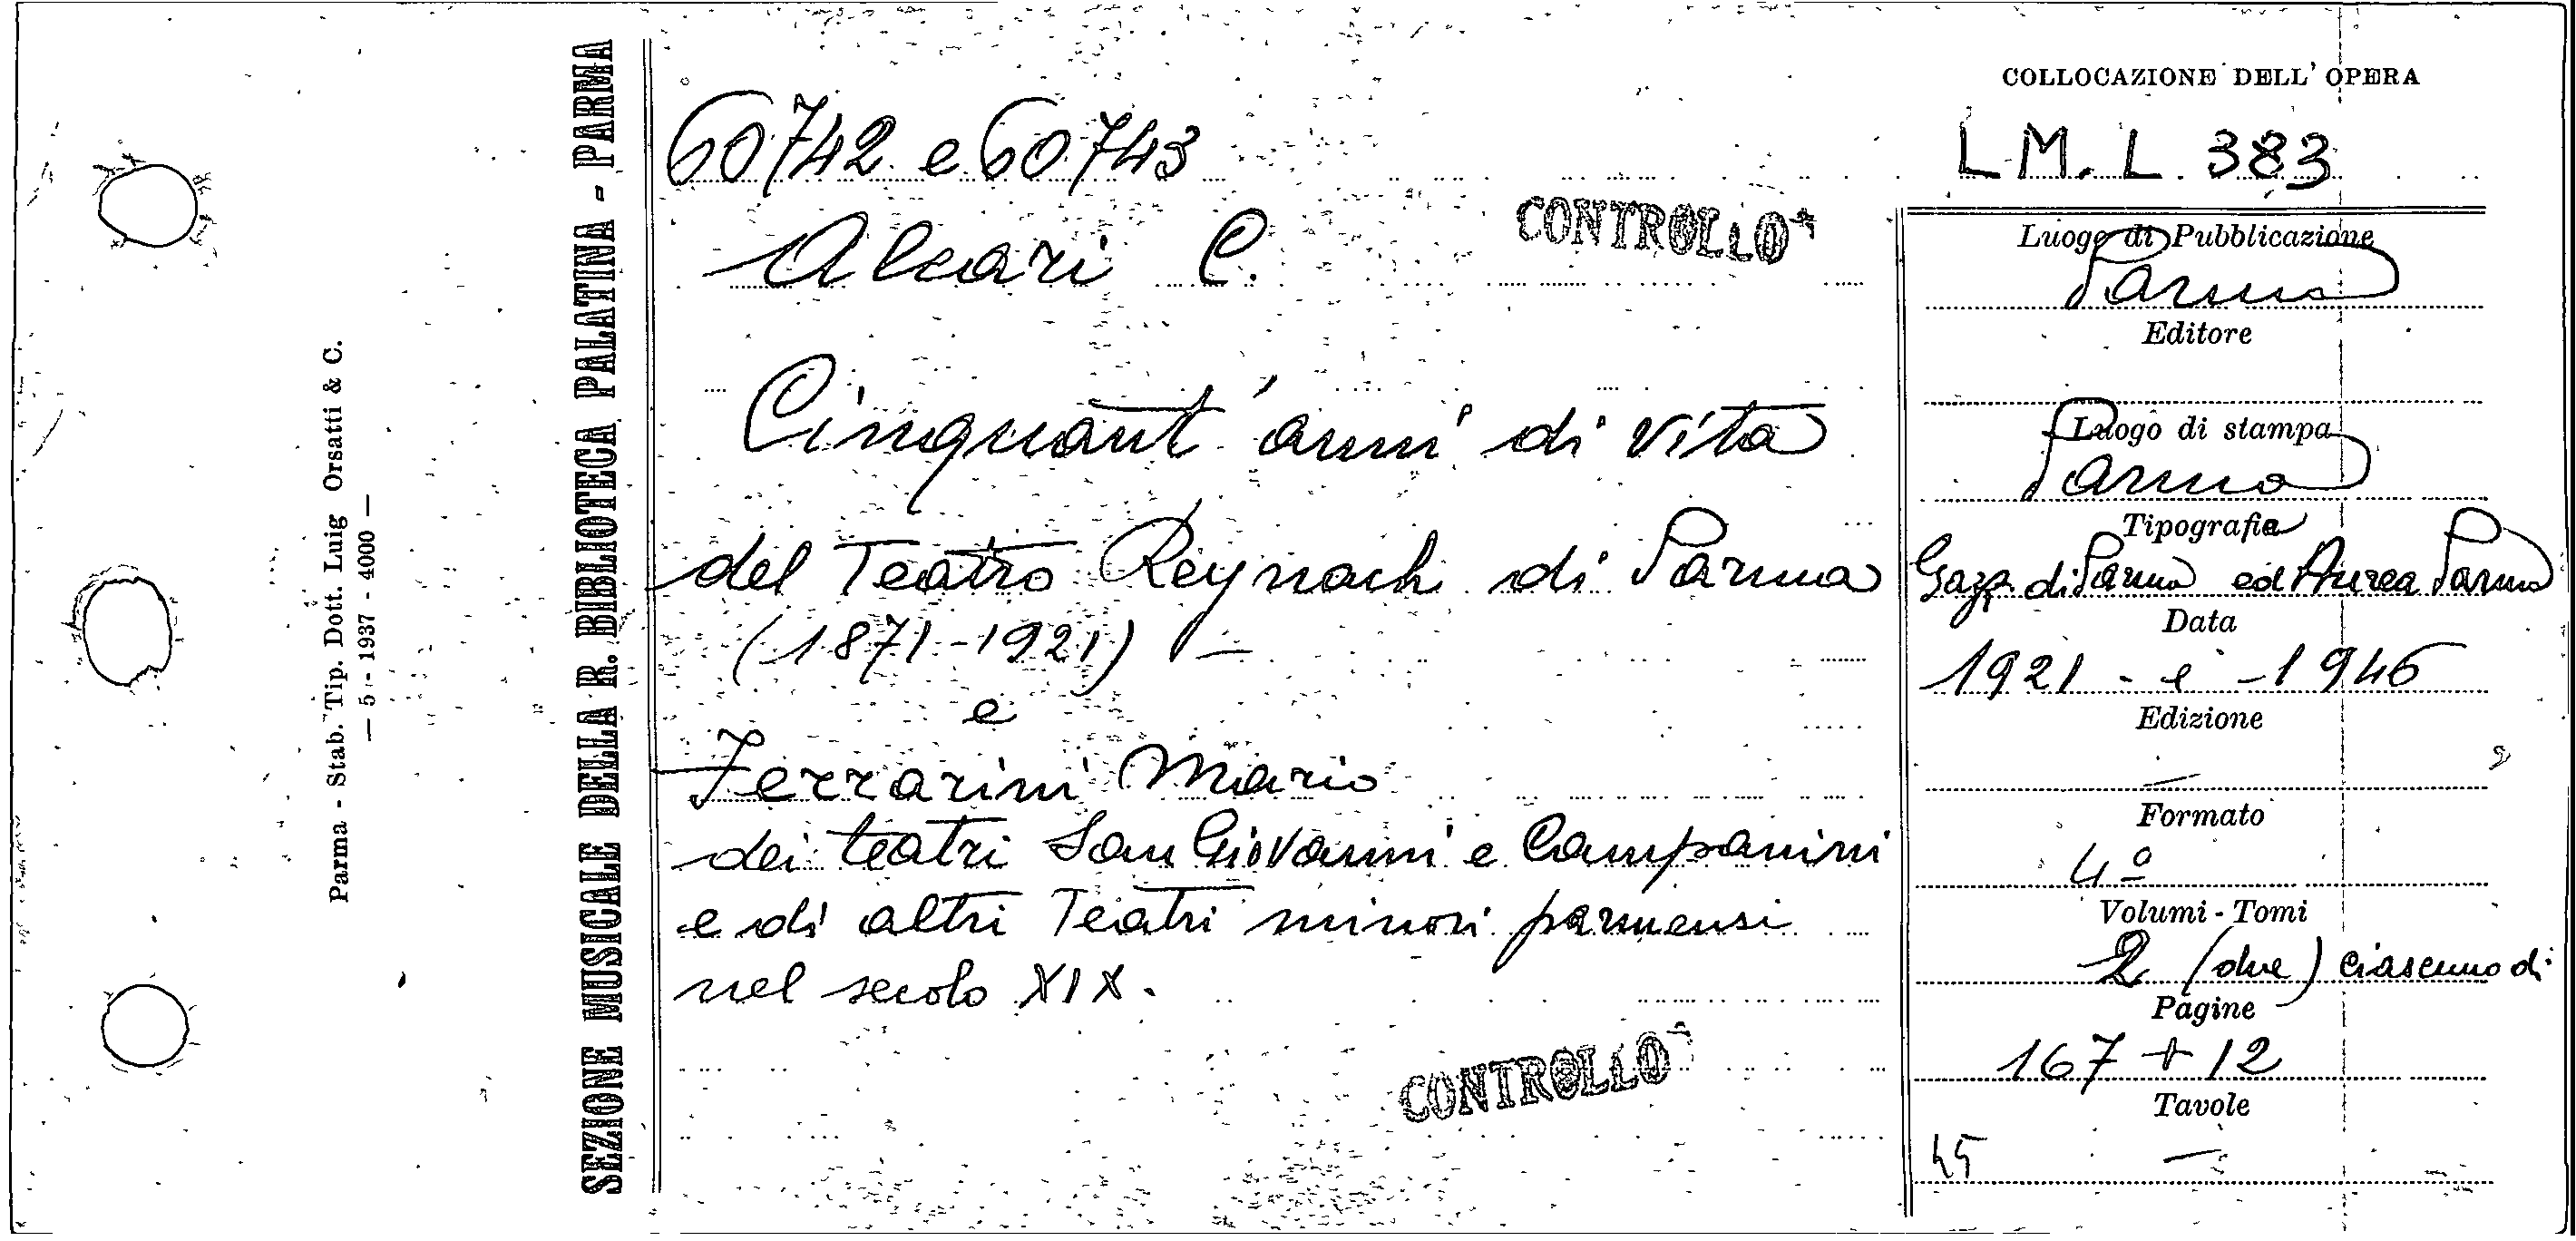 Parma - Stab. Tip. Dott. Luig Orsatti & C.
— 5 - 1937 - 4000 —
SEZIONE MUSICALE DELLA R. BIBLIOTECA PALATINA - PARMA
60742 e 60743
Alcari C.
CONTROLLO
Cinquant'anni di vita
del Teatro Reynach di Parma
(1871-1921) —
e
Ferrarini Mario
dei teatri San Giovanni e Campanini
e di altri Teatri minori parmensi
nel secolo XIX.
CONTROLLO
COLLOCAZIONE DELL'OPERA
L.M. L. 383
Luogo di Pubblicazione
Parma
Editore
Luogo di stampa
Parma
Tipografia
Gazz. di Parma ed Aurea Parma
Data
1921 - e - 1946
Edizione
—
Formato
4º
Volumi - Tomi
2 (due) ciascuno di
Pagine
167 + 12
Tavole
—